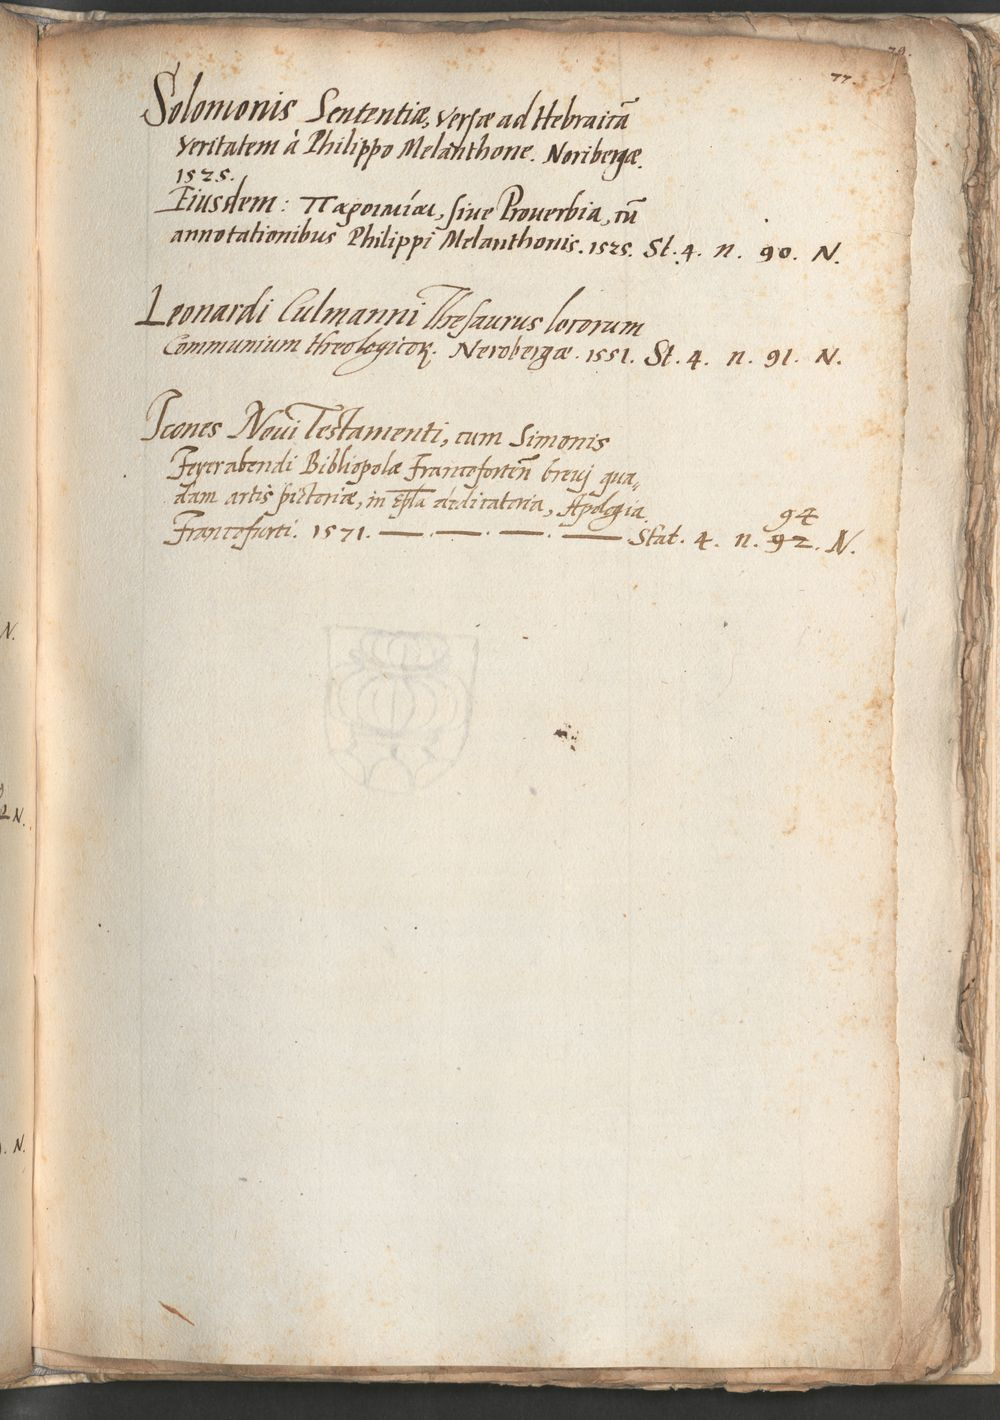 79.
77.
Solomonis Sententiæ, versæ ad Hebraicā
veritatem à Philippo Melanthone. Noribergæ.
1525.
Eiusdem: Παροιμίαι, siue Prouerbia, cū
annotationibus Philippi Melanthonis. 1525. St. 4. n. 90. N.
Leonardi Culmanni Thesaurus locorum
Communium theologicoꝝ. Nerobergæ. 1551. St. 4. n. 91. N.
Icones Noui Testamenti, cum Simonis
Feyerabendi Bibliopolæ Francofortēn breuj qua„
dam artis pictoriæ, in ep̄la dedicatoria, Apologia.
94
Francofurti. 1571. — . — . — . — Stat. 4. n. 92. N.
N.
2 N.
. N.